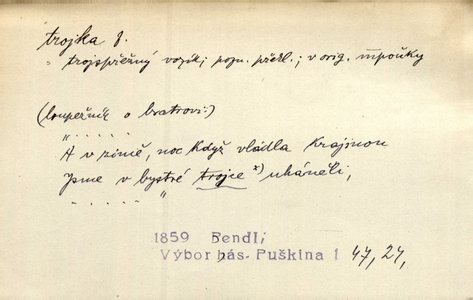 trojka f.
" trojspřežný vozík; pozn. překl.; v orig. тройки
(loupežník o bratrovi:)
" . . . . .
A v zimě, noc když vládla krajinou
Jsme v bystré trojce x) uháněli,
. . . . . "
1859 Bendl,
Výbor bás. Puškina I 47, 24,